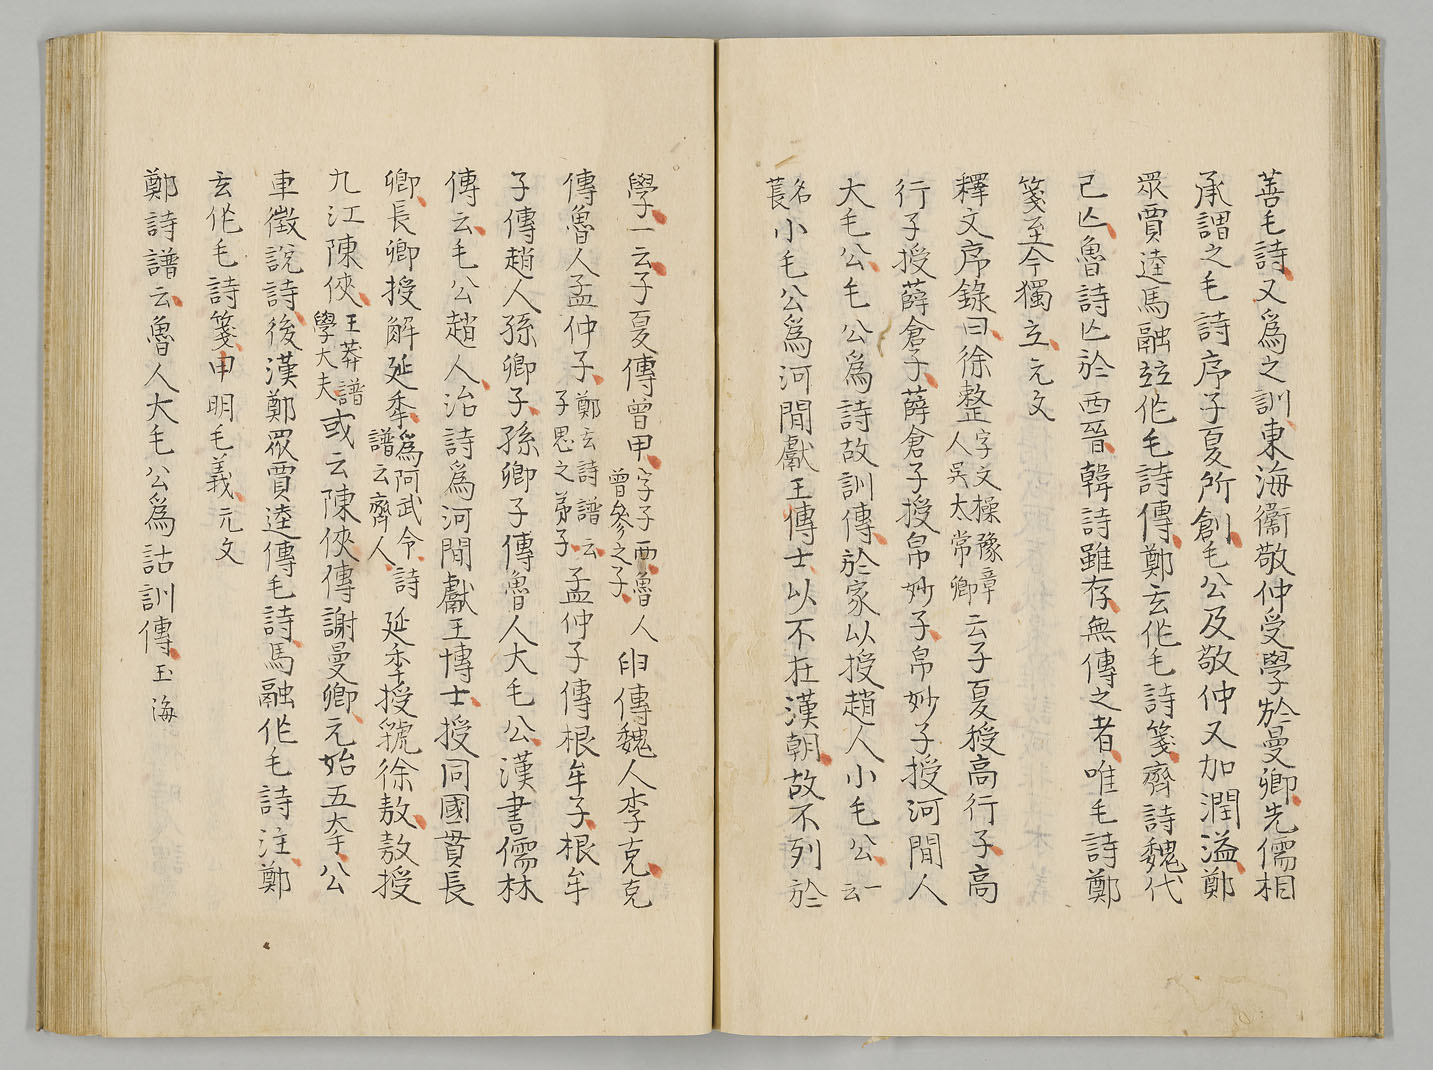 善毛詩又爲之訓東海衞敬仲受學於曼卿先儒相
承謂之毛詩序子夏所創毛公及敬仲又加潤溢鄭
眾賈逵馬融竝作毛詩傳鄭玄作毛詩箋齊詩魏代
已亾魯詩亾於西晉韓詩雖存無傳之者唯毛詩鄭
箋至今獨立元文
釋文序錄曰徐整字文操豫章人吳太常卿云子夏授高行子高
行子授薛倉子薛倉子授帛妙子帛妙子授河間人
大毛公毛公爲詩故訓傳於家以授趙人小毛公一云
名萇小毛公爲河間獻王傳士以不在漢朝故不列於
學一云子夏傳曾申字子西魯人曾參之子申傳魏人李克克
傳魯人孟仲子鄭玄詩譜云子思之弟子孟仲子傳根牟子根牟
子傳趙人孫卿子孫卿子傳魯人大毛公漢書儒林
傳云毛公趙人治詩爲河間獻王博士授同國貫長
卿長卿授解延秊爲阿武令詩譜云齊人延秊授虢徐敖敖授
九江陳俠王莽譜學大夫或云陳俠傳謝曼卿元始五年公
車徵說詩後漢鄭眾賈逵傳毛詩馬融作毛詩注鄭
玄作毛詩箋申明毛義元文
鄭詩譜云魯人大毛公爲詁訓傳玉海